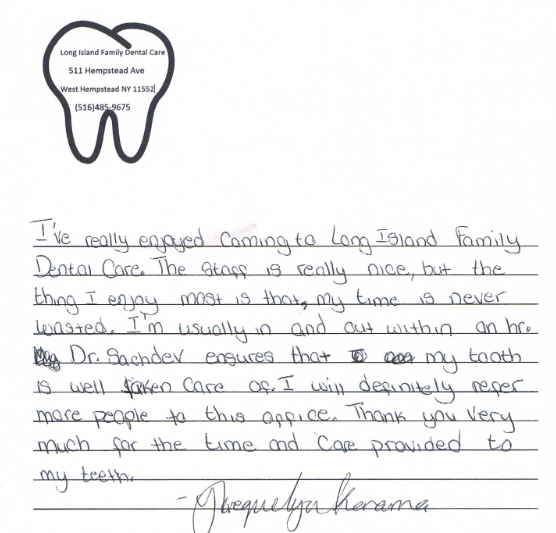 Long Island Family Dental Care
511 Hempstead Ave
West Hempstead NY 11552
(516)485-9675
I've really enjoyed coming to Long Island Family
Dental Care. The staff is really nice, but the
thing I enjoy most is that, my time is never
wasted. I'm usually in and out within an hr.
Dr. Sachdev ensures that my tooth
is well taken care of. I will definitely refer
more people to this office. Thank you very
much for the time and care provided to
my teeth.